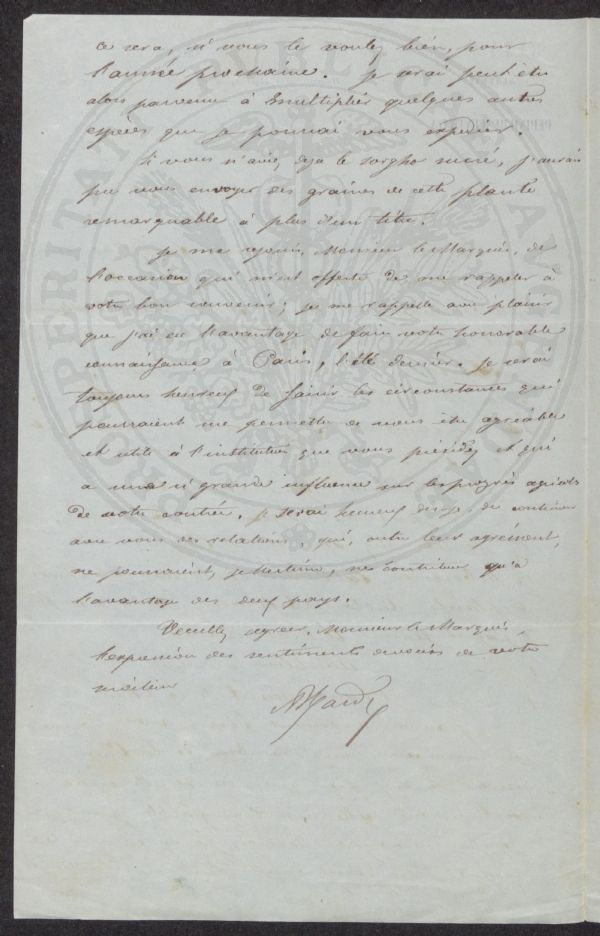 ce sera, si vous le voulez bien, pour
l'année prochaine. je serai peut être
alors parvenu à multiplier quelques autres
espèces que je pourrai vous expédier.
Si vous n'aviez deja le sorgho sucré, j'aurais
pu vous envoyer des graines de cette plante
remarquable à plus d'un titre.
Je me rejouis, Monsieur le Marquis, de
l'occasion qui m'est offerte de me rappeler à
votre bon souvenir; je me rappelle avec plaisir
que j'ai eu l'avantage de faire votre honorable
connaissance à Paris, l'été dernier. Je serai
toujours heureux de saisir les circonstances qui
pourraient me permettre de vous être agréable
et utile à l'institution que vous présidez et qui
a une si grande influence sur les progrès agricoles
de votre contrée. Je serai heureux de continuer
avec vous des relations, qui, outre leur agrément,
ne pourraient, je l'estime, ne contribuer qu'à
l'avantage des deux pays.
Veuillez agréer, Monsieur le Marquis,
l'expression des sentiments dévoués de votre
serviteur
Hardy
PROSPERITATI PUBLICAE